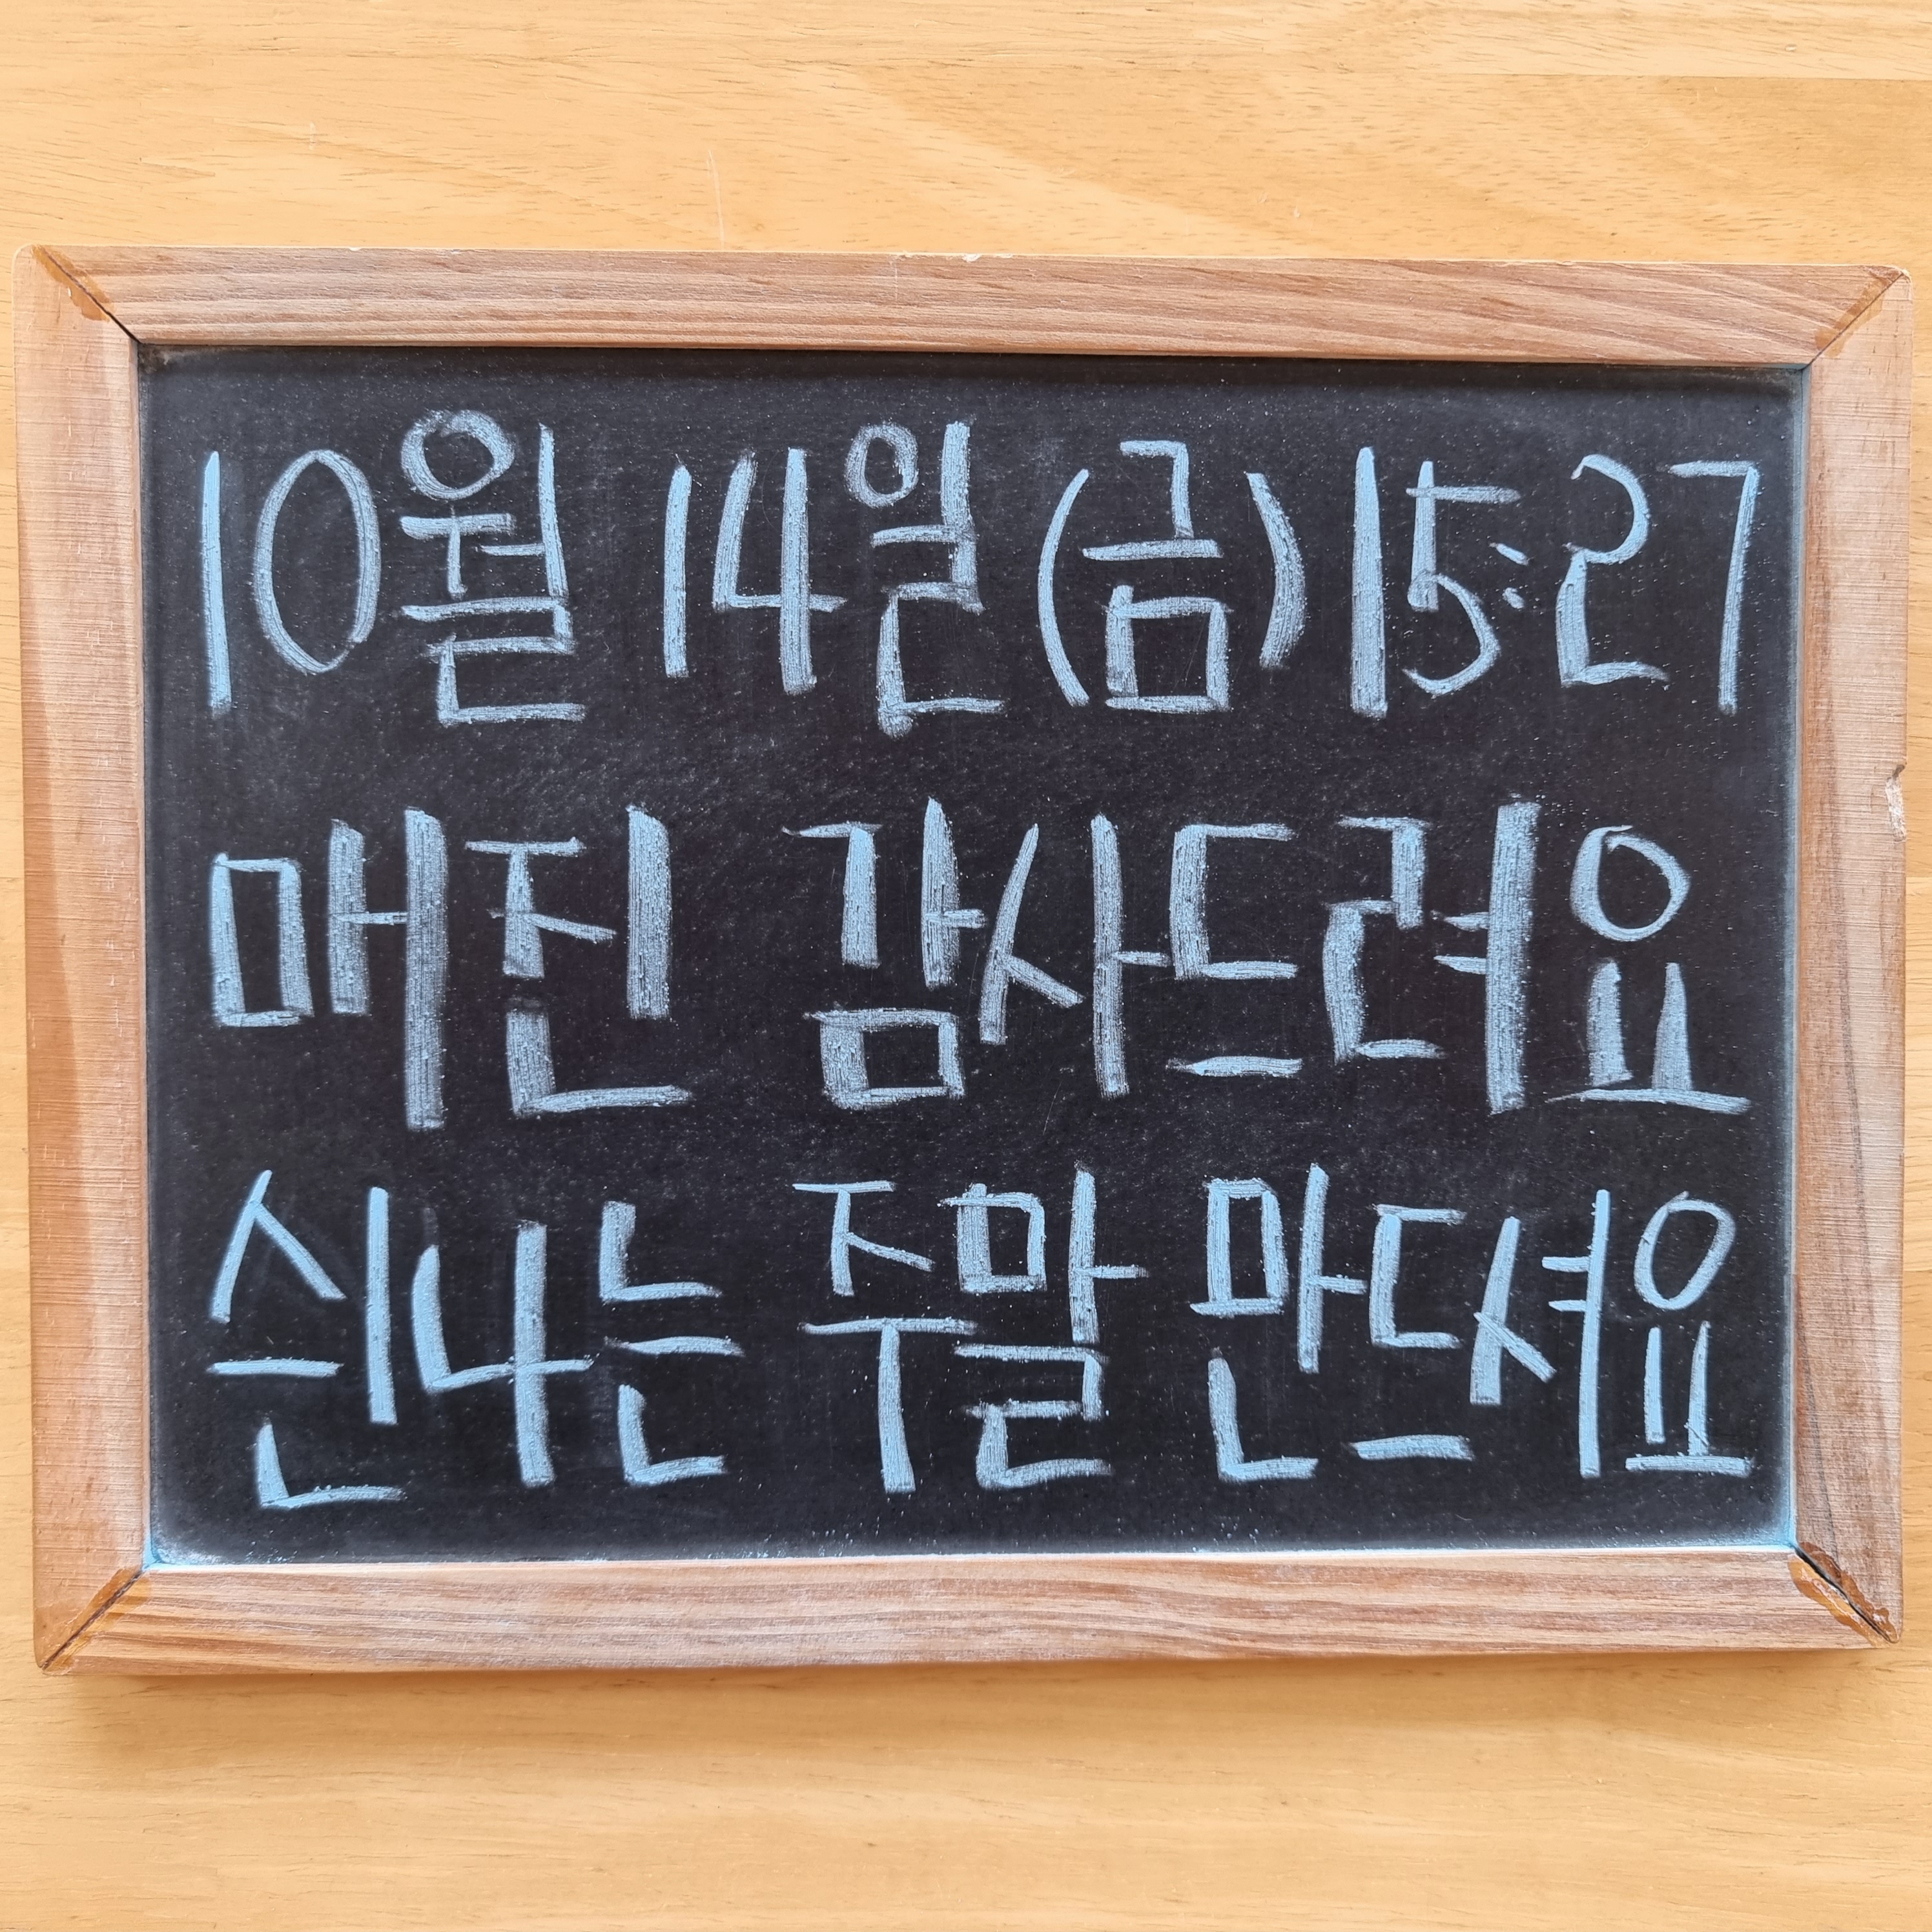 10월 14일(금)15:27
매진 감사드려요
싄나는 주말 만드셔요